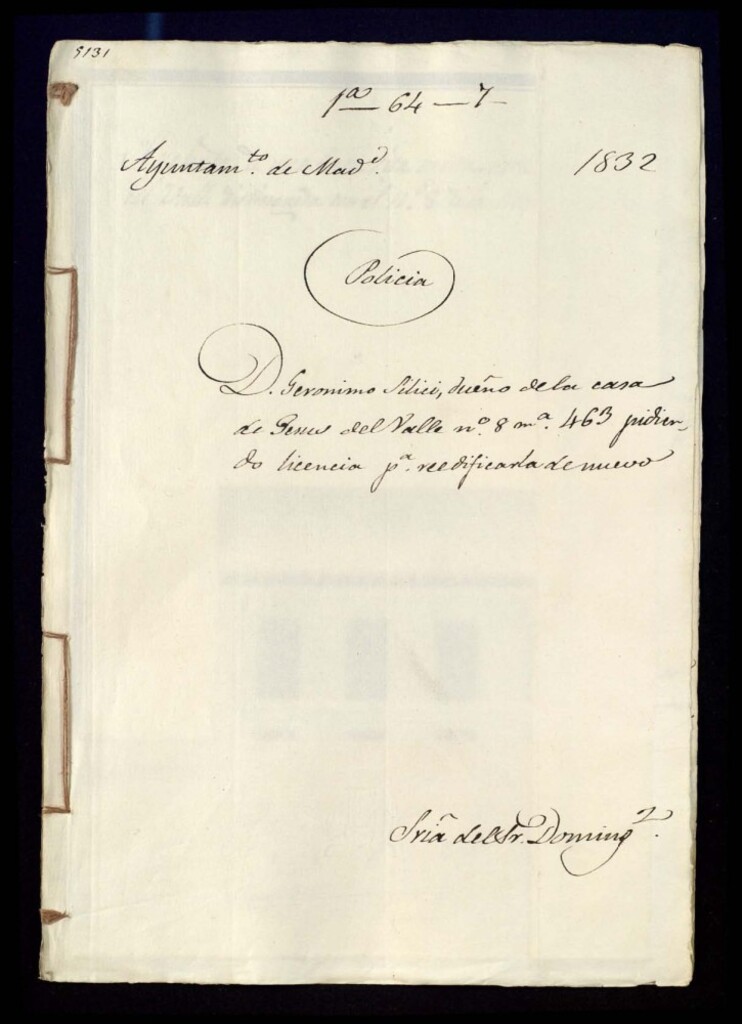 5131
1ª — 64 — 7
Ayuntam.to de Mad.d
1832
Policia
D. Geronimo Silici, dueño de la casa
de Gesus del Valle nº. 8 mª. 463 pidien-
do licencia pª. reedificarla de nuevo
Sria del Sr. Doming.z